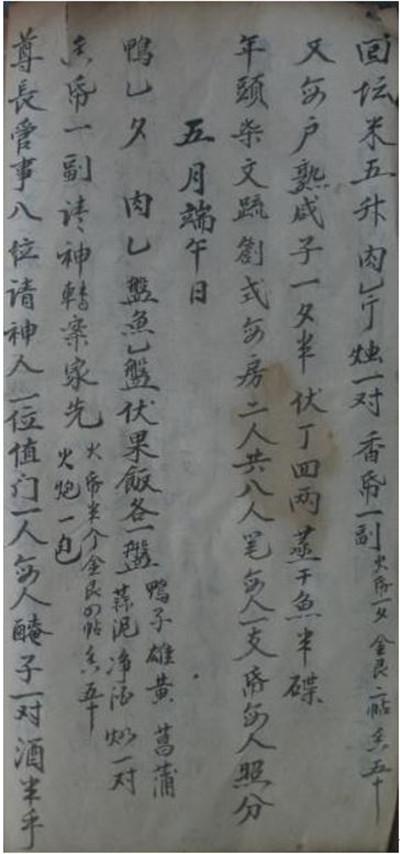 回坛米五升肉乚斤烛一对香帋一副火帋一夕金艮二帖香五十
又每户熟咸子一夕半伏丁四两蒸干魚半碟
年頭柴文疏劄式每房二人共八人笔每人一支帋每人照分
五月端午日
鸭乚夕肉乚盤魚乚盤伏果飯各一盤鸭子雄黄菖蒲
蒜泥净酒烛一对
香帋一副请神轉案家先火帋半个金艮四帖香五十
火炮一包
尊長管事八位请神人一位值门一人每人醃子一对酒半手